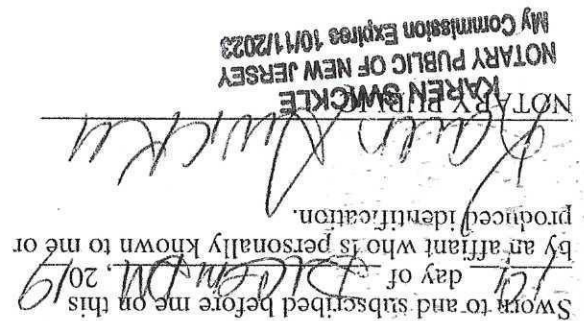 Sworn to and subscribed before me on this
day of December, 2019
by an affiant who is personally known to me or
produced identification.
Karen Swickle
NOTARY PUBLIC
KAREN SWICKLE
NOTARY PUBLIC OF NEW JERSEY
My Commission Expires 10/11/2023